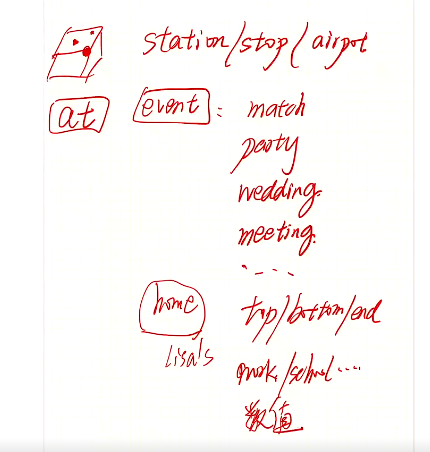 station/stop/airpot
at event: match
party
wedding.
meeting.
.....
home top/bottom/end
Lisa's work/school....
数值